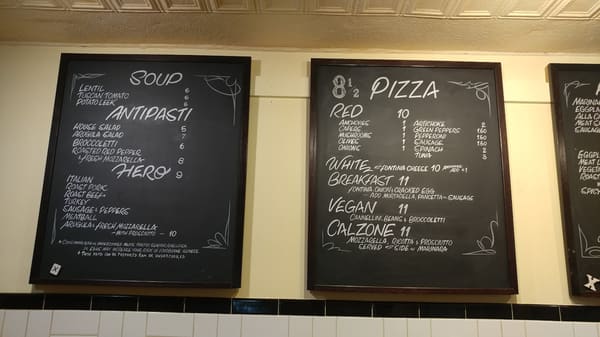 SOUP
LENTIL 6
TUSCAN TOMATO 6
POTATO LEEK 6
ANTIPASTI
HOUSE SALAD 5
ARUGULA SALAD 7
BROCCOLETTI 6
ROASTED RED PEPPER
& FRESH MOZZARELLA 8
HERO 9
ITALIAN
ROAST PORK
ROAST BEEF
TURKEY
SAUSAGE & PEPPERS
MEATBALL
ARUGULA & FRESH MOZZARELLA
- WITH PROSCIUTTO - 10
8 1/2 PIZZA
RED 10
ANCHOVIES 1
CAPERS 1
MUSHROOMS 1
OLIVES 1
ONIONS 1
ARTICHOKE 2
GREEN PEPPERS 1.50
PEPPERONI 1.50
SAUSAGE 2
SPINACH 2
TUNA 3
WHITE FONTINA CHEESE 10
BREAKFAST 11
FONTINA, ONION & CRACKED EGG
- ADD MOZZARELLA, PANCETTA OR SAUSAGE
VEGAN 11
CANNELLINI BEANS & BROCCOLETTI
CALZONE 11
MOZZARELLA, RICOTTA & PROSCIUTTO
SERVED SIDE OF MARINARA